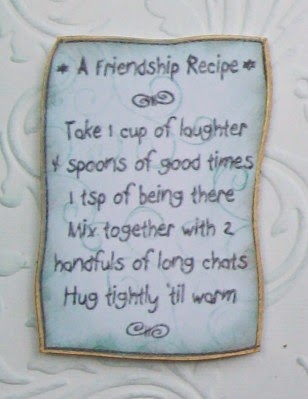 * A Friendship Recipe *
Take 1 cup of laughter
4 spoons of good times
1 tsp of being there
Mix together with 2
handfuls of long chats
Hug tightly 'til warm